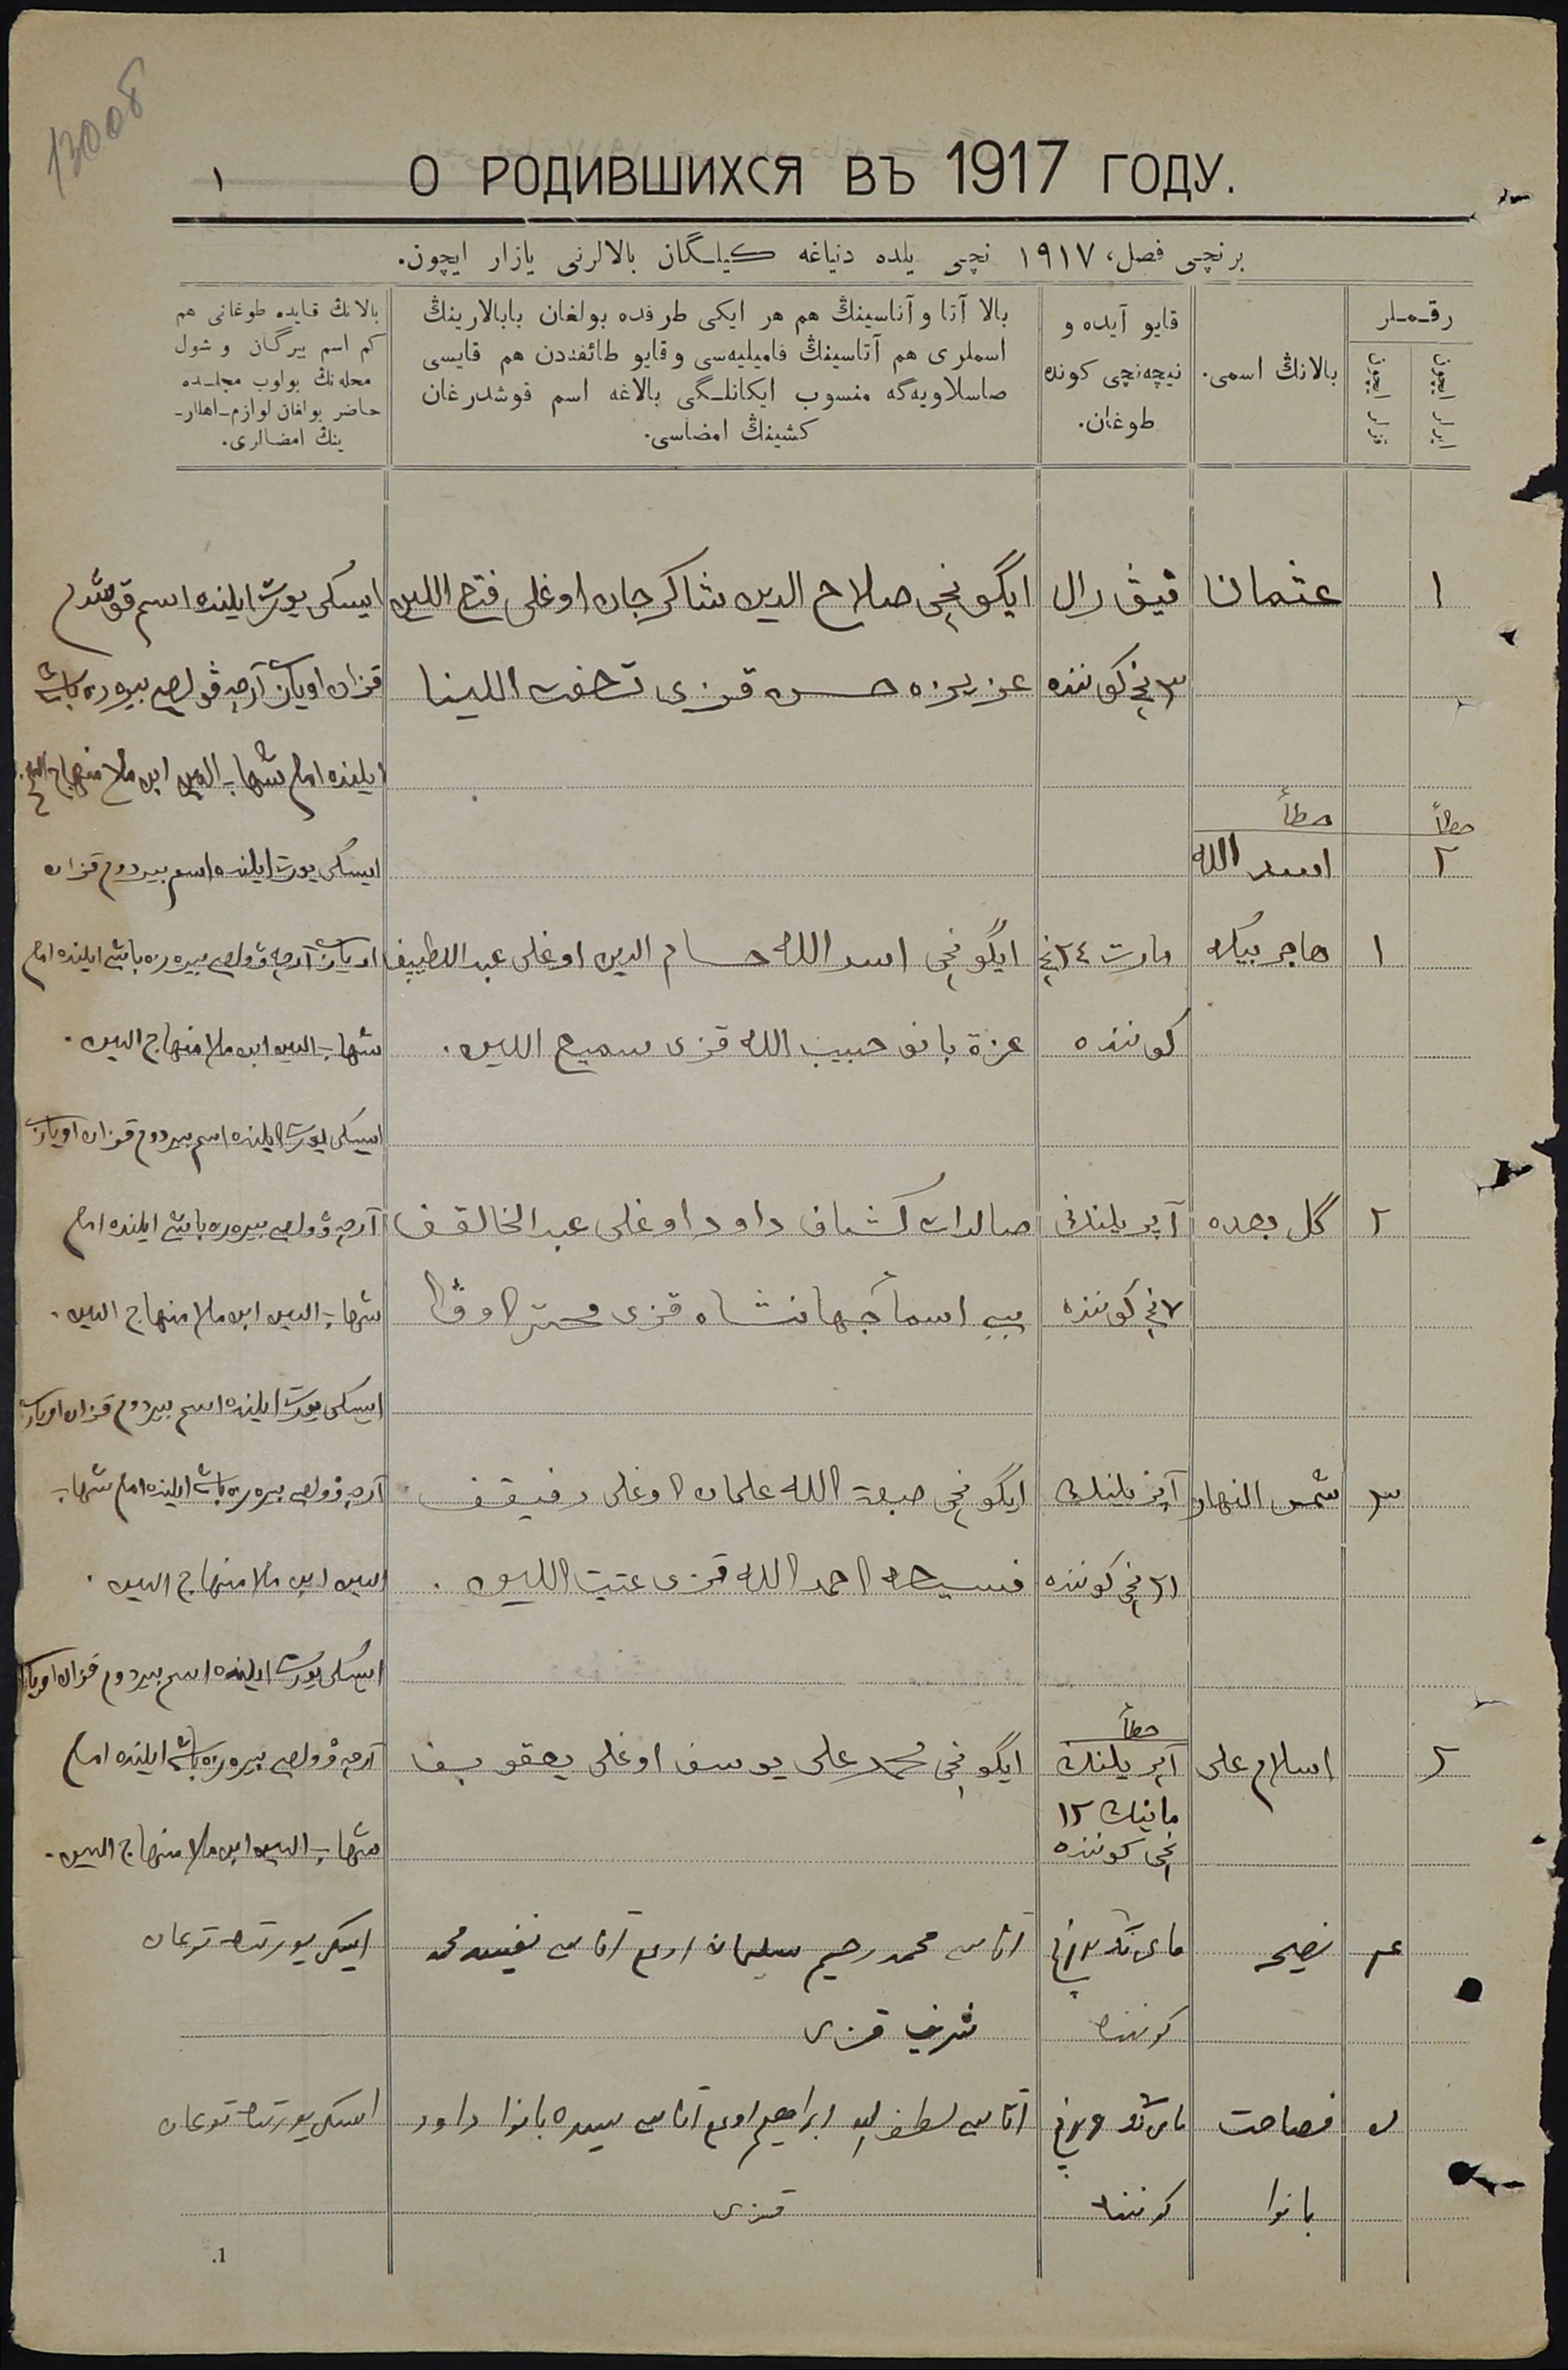 13008
١
О РОДИВШИХСЯ ВЪ 1917 ГОДУ.
برنچی فصل، ١٩١٧ نچی یلده دنیاغه کیلـگان بالالرنی یازار ایچون.
رقـمـلر
ایرلر ایچون
قزلر ایچون
بالانڭ اسمی.
قایو آیده و
نیچه‌نچی کونده
طوغان.
بالا آتا و آناسینڭ هم هر ایکی طرفده بولغان بابالارینڭ
اسملری هم آتاسینڭ فامیلیه‌سی و قایو طائفه‌دن هم قایسی
صاسلاویه‌گه منسوب ایکانلـگی بالاغه اسم قوشدرغان
کشینڭ امضاسی.
بالانڭ قایده طوغانی هم
کم اسم بیرگان و شول
محله‌نڭ بولوب مجلـده
حاضر بولغان لوازم-اهللر-
ینڭ امضالری.
١ عثمان فیفرال ایگونچی صلاح الدین شاکرجان اوغلی فتح اللین ایسکی یورت ایلنده اسم قوشدم
٣ نچی کوننده عزیزه حسن قزی تحفت اللینا قزان اویازی آرچه ڤولصی بیره‌زه باشی
ایلنده امام شهاب الدین ابن ملا منهاج الدین
خطأ خطأ
٢ اسد الله ایسکی یورت ایلنده اسم بیردوم قزان
١ هاجر بیکه مارت ٢٤ نچی ایگونچی اسد الله حسام الدین اوغلی عبد اللطیف اویازی آرچه ڤولصی بیره‌زه باشی ایلنده امام
کوننده عزة بانو حبیب الله قزی سمیع اللین. شهاب الدین ابن ملا منهاج الدین.
ایسکی یورت ایلنده اسم بیردوم قزان اویازی
٢ گل آپریلنڭ صالدات کشاف داود اوغلی عبد الخالقف آرچه ڤولصی بیره‌زه باشی ایلنده امام
٧ نچی کوننده بیبی اسما جهانشاه قزی شهاب الدین ابن ملا منهاج الدین.
ایسکی یورت ایلنده اسم بیردوم قزان اویازی
٣ شمس النهار آپریلنڭ ایگونچی صبغة الله اوغلی رفیقف آرچه ڤولصی بیره‌زه باشی ایلنده امام شهاب
٢١ نچی کوننده احمد الله قزی اللین. الدین ابن ملا منهاج الدین.
ایسکی یورت ایلنده اسم بیردوم قزان اویازی
خطأ
٢ اسلام علی آپریلنڭ ایگونچی محمد علی یوسف اوغلی یعقوبف آرچه ڤولصی بیره‌زه باشی ایلنده امام
ماینڭ ١٢
نچی کوننده شهاب الدین ابن ملا منهاج الدین.
٤ نصیحه آتاسی محمد رحیم سلیمان اوغلی آناسی نفیسه محمد ایسکی یورتده توغان
کوننده شریف قزی
٥ فصاحت آتاسی لطف الله ابراهیم اوغلی آناسی سیده بانوا داود ایسکی یورتده توغان
بانوا کوننده قزی
1.